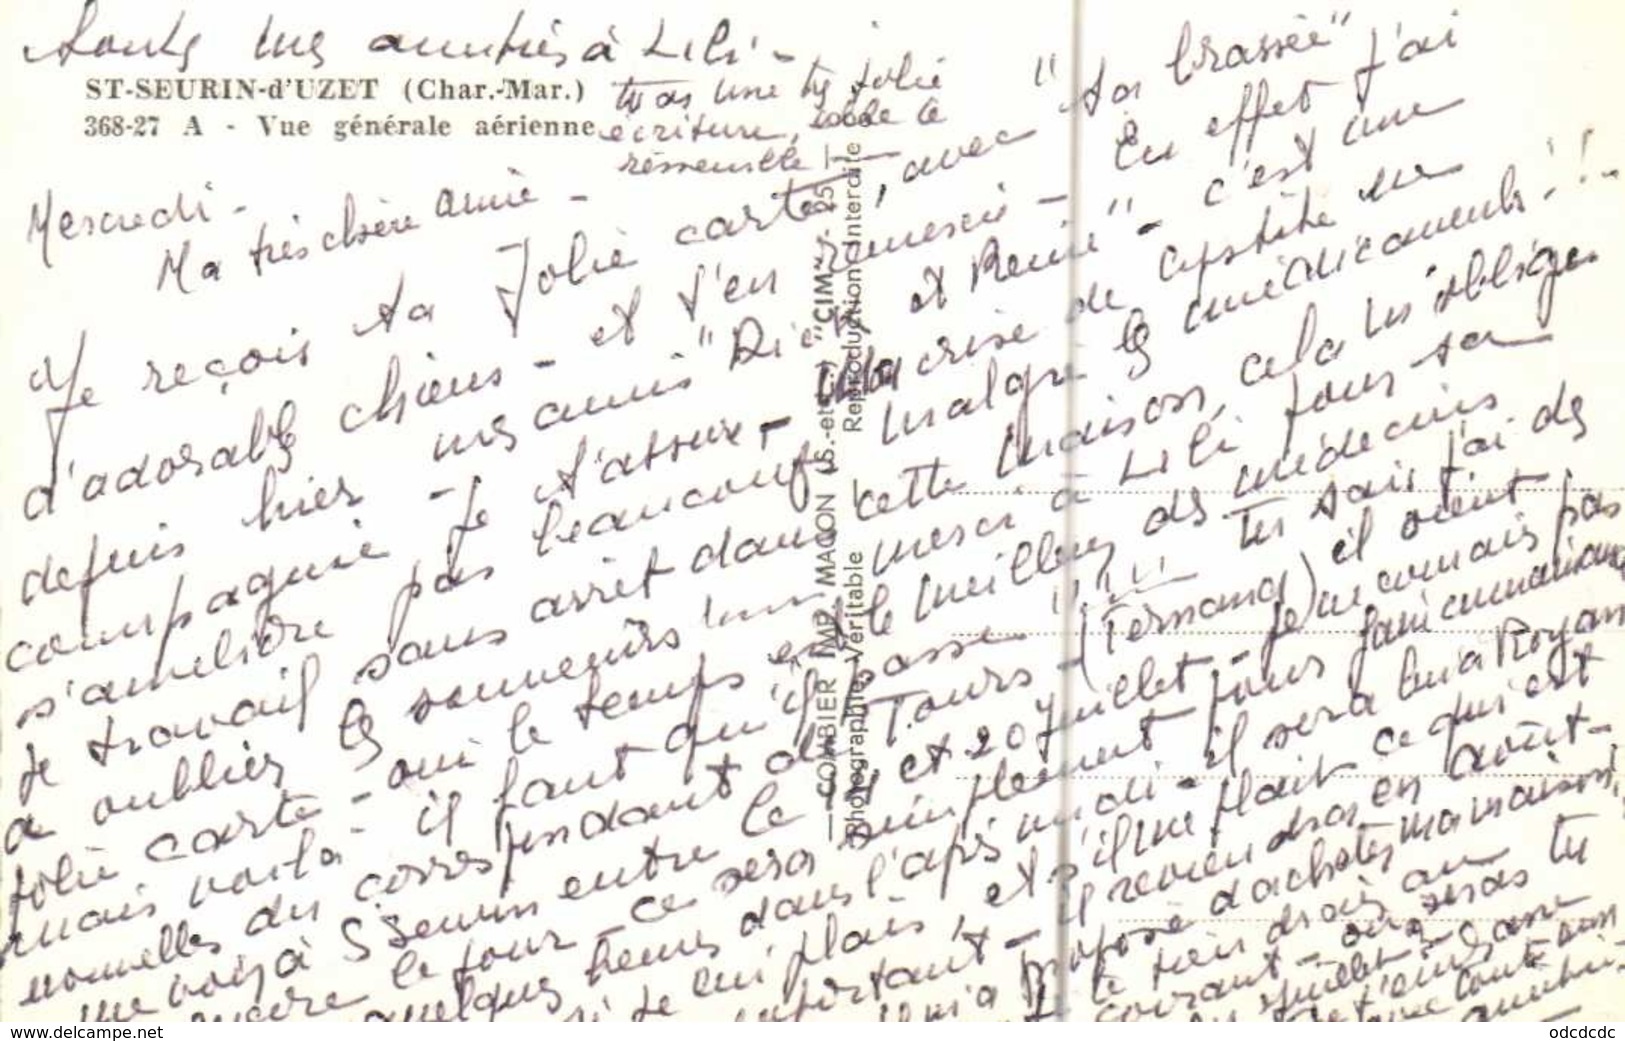 toutes mes amitiés à Lili -
ST-SEURIN-d'UZET (Char.-Mar.)
368-27 A - Vue générale aérienne
tu as une très jolie
écriture, elle te
ressemble -
Mercredi -
Ma très chère amie -
Je reçois ta jolie carte, avec "ta brassée"
d'adorables chiens - et t'en remercie - En effet j'ai
depuis hier mes amis "Dick et René" - c'est une
compagnie - Je t'assure - crise de cystite ne
s'améliore pas beaucoup malgré les médicaments!!-
Je travail sans arrêt dans cette maison, cela m'oblige
a oublier les souvenirs merci à Lili pour sa
jolie carte - oui le temps est le meilleur des médecins
mais voilà - il faut qu'il passe Tu sais j'ai des
nouvelles du correspondant de Tours - (Fernand) il vient
me voir à S Seurin entre le et 20 juillet - je ne connais pas
encore le jour - ce sera simplement pour faire connaissance
quelques heures dans l'après midi - il sera lui à Royan
si je lui plais, et s'il me plait ce qui est
important - il reviendra en août -
il m'a proposé d'acheter ma maison,
je te tiendrais au
courant - seras tu
juillet
COMBIER IMP. MACON (S.-et-L.) "CIM"
Photographie Véritable
Reproduction Interdite
www.delcampe.net
odcdcdc